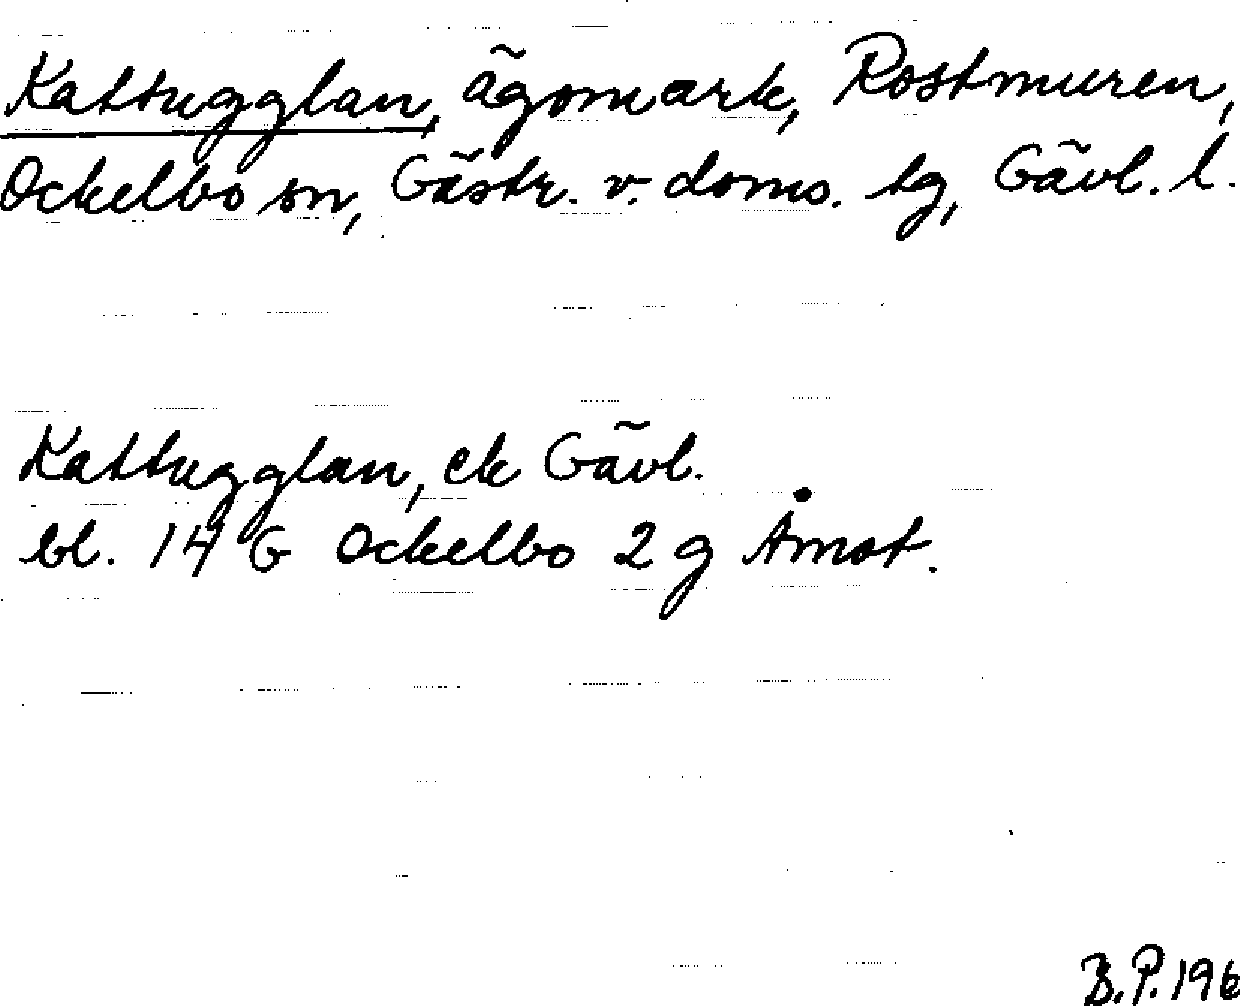 Kattugglan, ägomark, Rostmuren,
Ockelbo sn, Gästr. v. doms. tg, Gävl. l.
Kattugglan, ek Gävl.
bl. 14 G Ockelbo 2 g Åmot.
B.P. 196